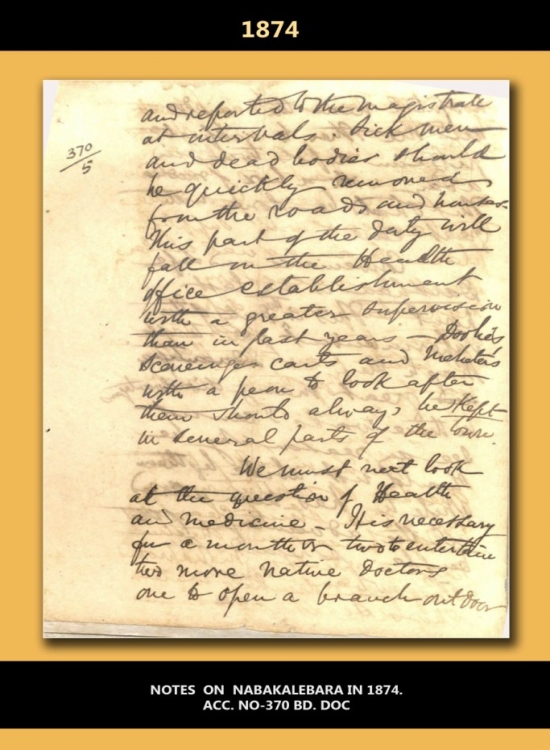 1874
370/5
and reported to the magistrate
at intervals. Sick men
and dead bodies should
be quickly removed
from the roads and houses.
This part of the duty will
fall on the Health
office establishment
with a greater supervision
than in past years –
scavenger carts and Mehters
with a peon to look after
them should always be kept
in several parts of the town.
We must next look
at the question of Health
and medicine – It is necessary
for a month or two to entertain
two more Native Doctors
one to open a branch outdoor
NOTES ON NABAKALEBARA IN 1874.
ACC. NO-370 BD. DOC